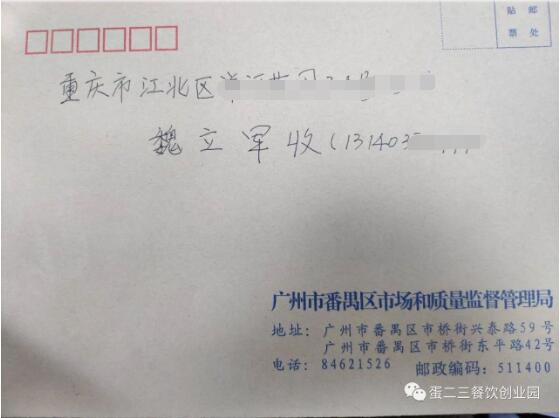 贴 邮
票 处
重庆市江北区
魏立军收(131403
广州市番禺区市场和质量监督管理局
地址：广州市番禺区市桥街兴泰路59号
广州市番禺区市桥街东平路42号
电话：84621526 邮政编码：511400
蛋二三餐饮创业园